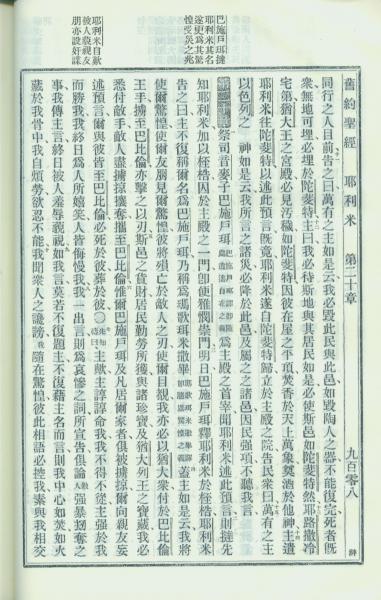 舊約聖經　耶利米　第二十章　九百零八
巴施戶珥撻
耶利米其名
遂更為其驚
惶受災之兆
耶利米自歎
被人藐視友
朋亦設奸謀
同行之人目前、告之曰、萬有之主如是云、我必毀此民與此邑、如毀陶人之器、不能復完、死者既
衆、無地可埋、必埋於陀斐特、主曰、我必待斯地與其居民如是、必使斯邑如陀斐特然、耶路撒冷
宅第、猶大王之宮殿、必見污穢如陀斐特、因彼在屋之平頂、焚香於天上萬象、奠酒於他神、主遣
耶利米往陀斐特、以述此預言、既竟、耶利米遂自陀斐特歸、立於主殿之院、告民衆曰、萬有之主
以色列之　神、如是云、我所言之諸災、必降於此邑及屬之之諸邑、因民强項、不聽我言、
第二十章 祭司音麥子巴施戶珥 為主殿之首宰、聞耶利米述此預言、則撻先
知耶利米、加以桎梏、囚於主殿之一門、即便雅憫崇門、明日巴施戶珥釋耶利米於桎梏、耶利米
告之曰、主不復稱爾名為巴施戶珥、乃稱為瑪歌珥米撒畢 蓋主如是云、我將
使爾驚惶、使爾友朋見爾驚惶、彼將殞亡於敵人之刃、使爾目覩、我亦必以猶大人衆付於巴比倫
王手、擄至巴比倫、亦擊之以刃、斯邑之貲財、居民勤勞所獲、與諸珍寶、及猶大列王之寶藏、我必
悉付敵手、敵人盡擄掠攘奪攜至巴比倫、惟爾巴施戶珥及凡居爾家者俱被擄、爾向親友妄
述預言、爾與彼皆至巴比倫、必死於彼葬於彼、○先知禱曰主歟、主諄諄命我、我不得不從、主强於我
而勝我、我終日為人所嬉笑、人皆侮慢我、我一出言則為哀慘之詞、所宣告俱論 强暴刼奪之
事、我傳主言、終日被人羞辱藐視、如我言莫若不復題主、不復藉主名而言、則我中心如焚、如火
藏於我骨中、我自煩勞欲忍不能、我聞衆人之讒謗、我隨在驚惶、彼此相語必控我、素與我相交